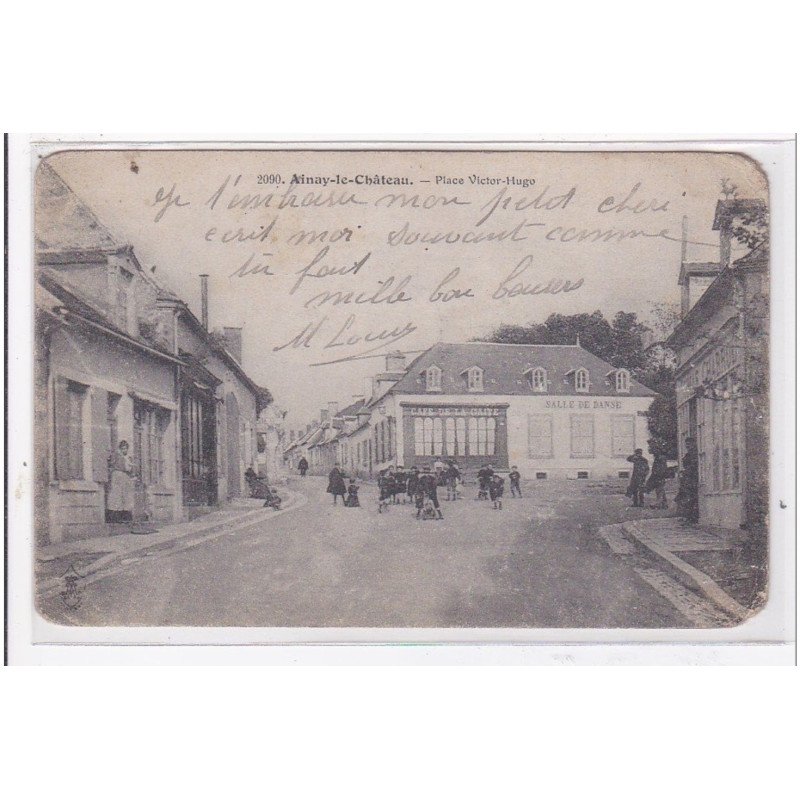 2090. Ainay-le-Château. — Place Victor-Hugo
Je t'embrasse mon petit cheri
ecrit moi souvant comme
tu fait
mille bon baisers
M Louis
CAFÉ DE LA GAITÉ
SALLE DE DANSE